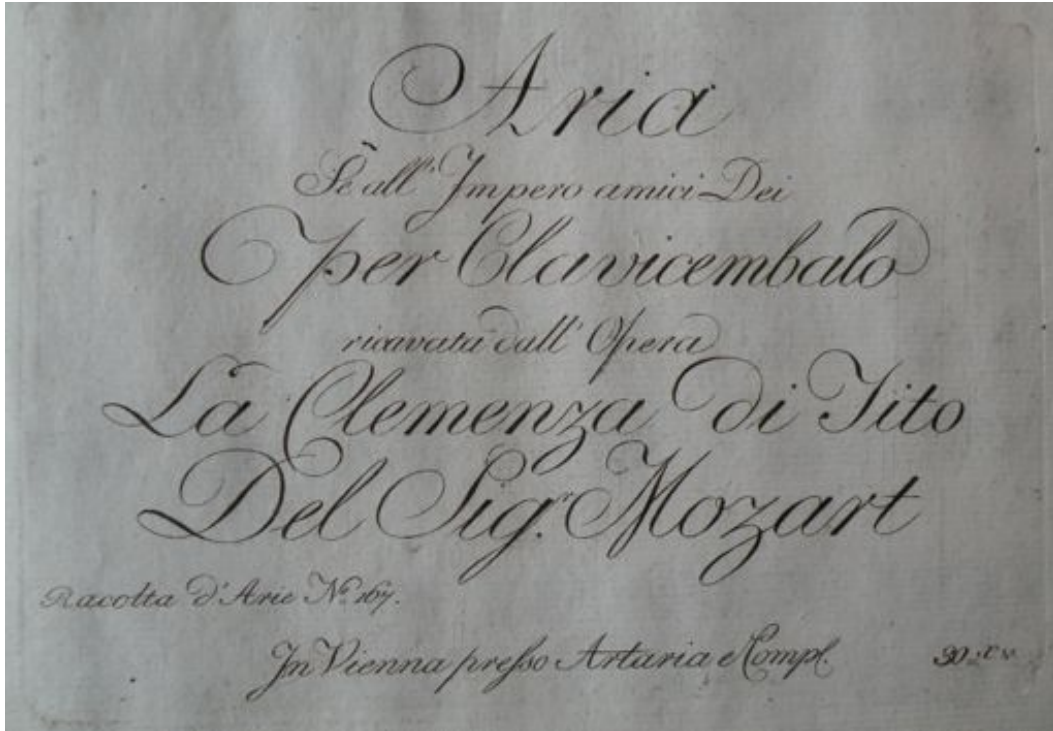 Aria
Sè all' Impero amici Dei
per Clavicembalo
ricavata dall' Opera
La Clemenza di Tito
Del Sig.r Mozart
Racolta d'Arie No. 167.
In Vienna presso Artaria e Comp.